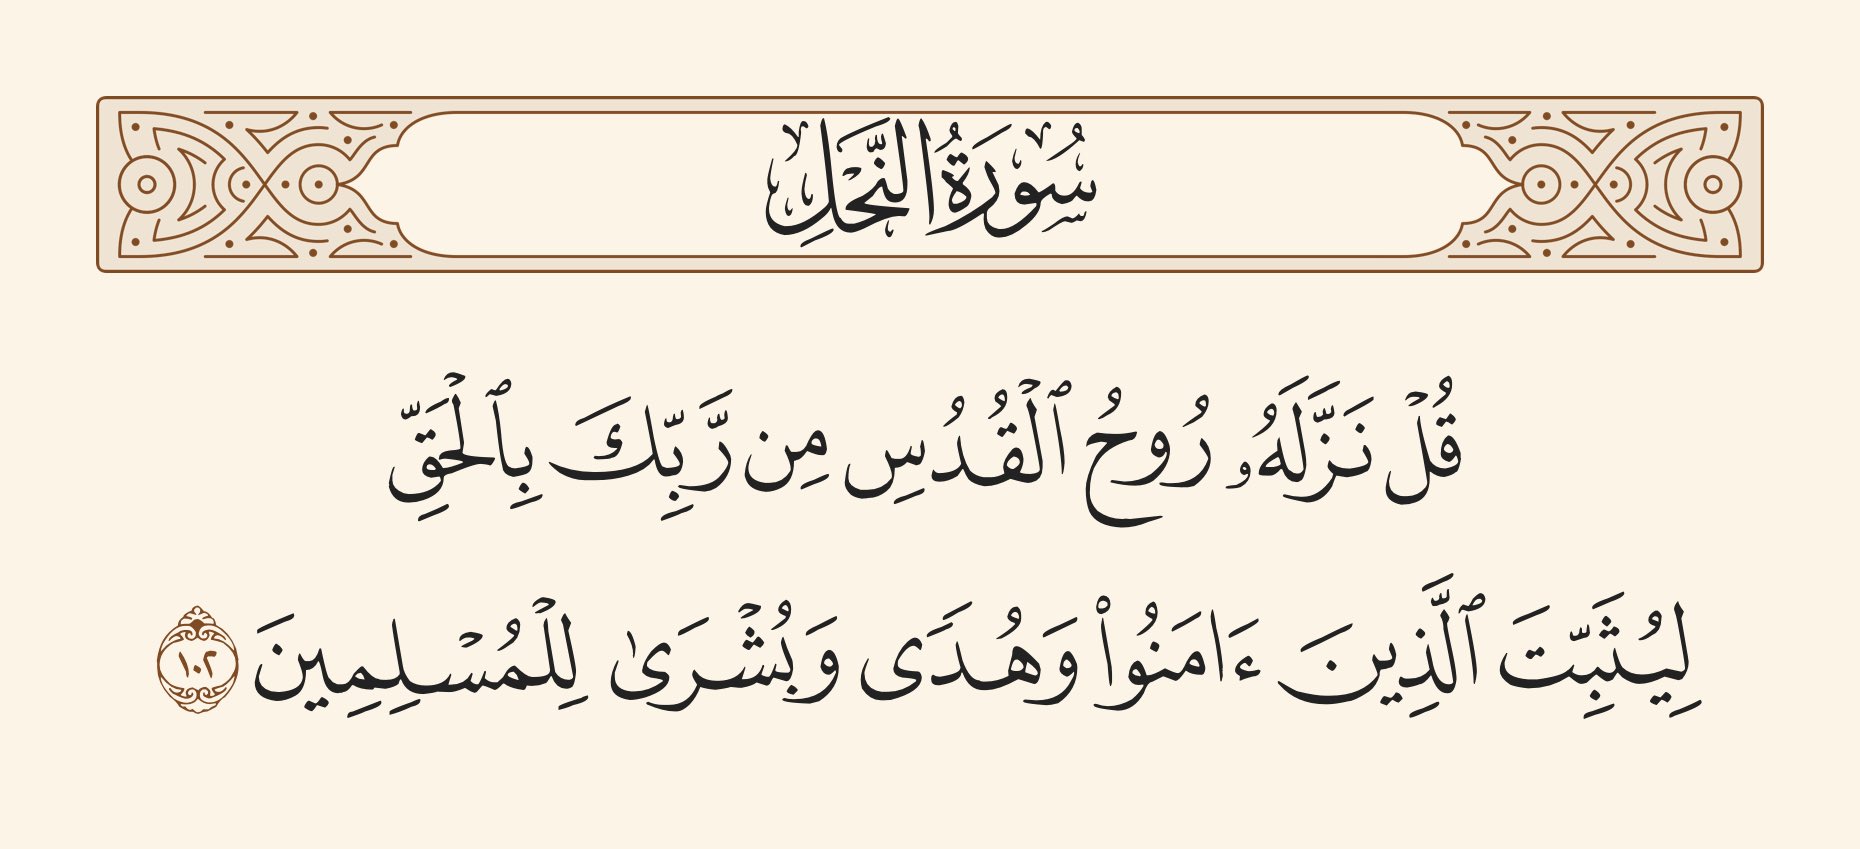 سُورَةُ النَّحْلِ
قُلْ نَزَّلَهُۥ رُوحُ ٱلْقُدُسِ مِن رَّبِّكَ بِٱلْحَقِّ
لِيُثَبِّتَ ٱلَّذِينَ ءَامَنُوا۟ وَهُدًى وَبُشْرَىٰ لِلْمُسْلِمِينَ ١٠٢